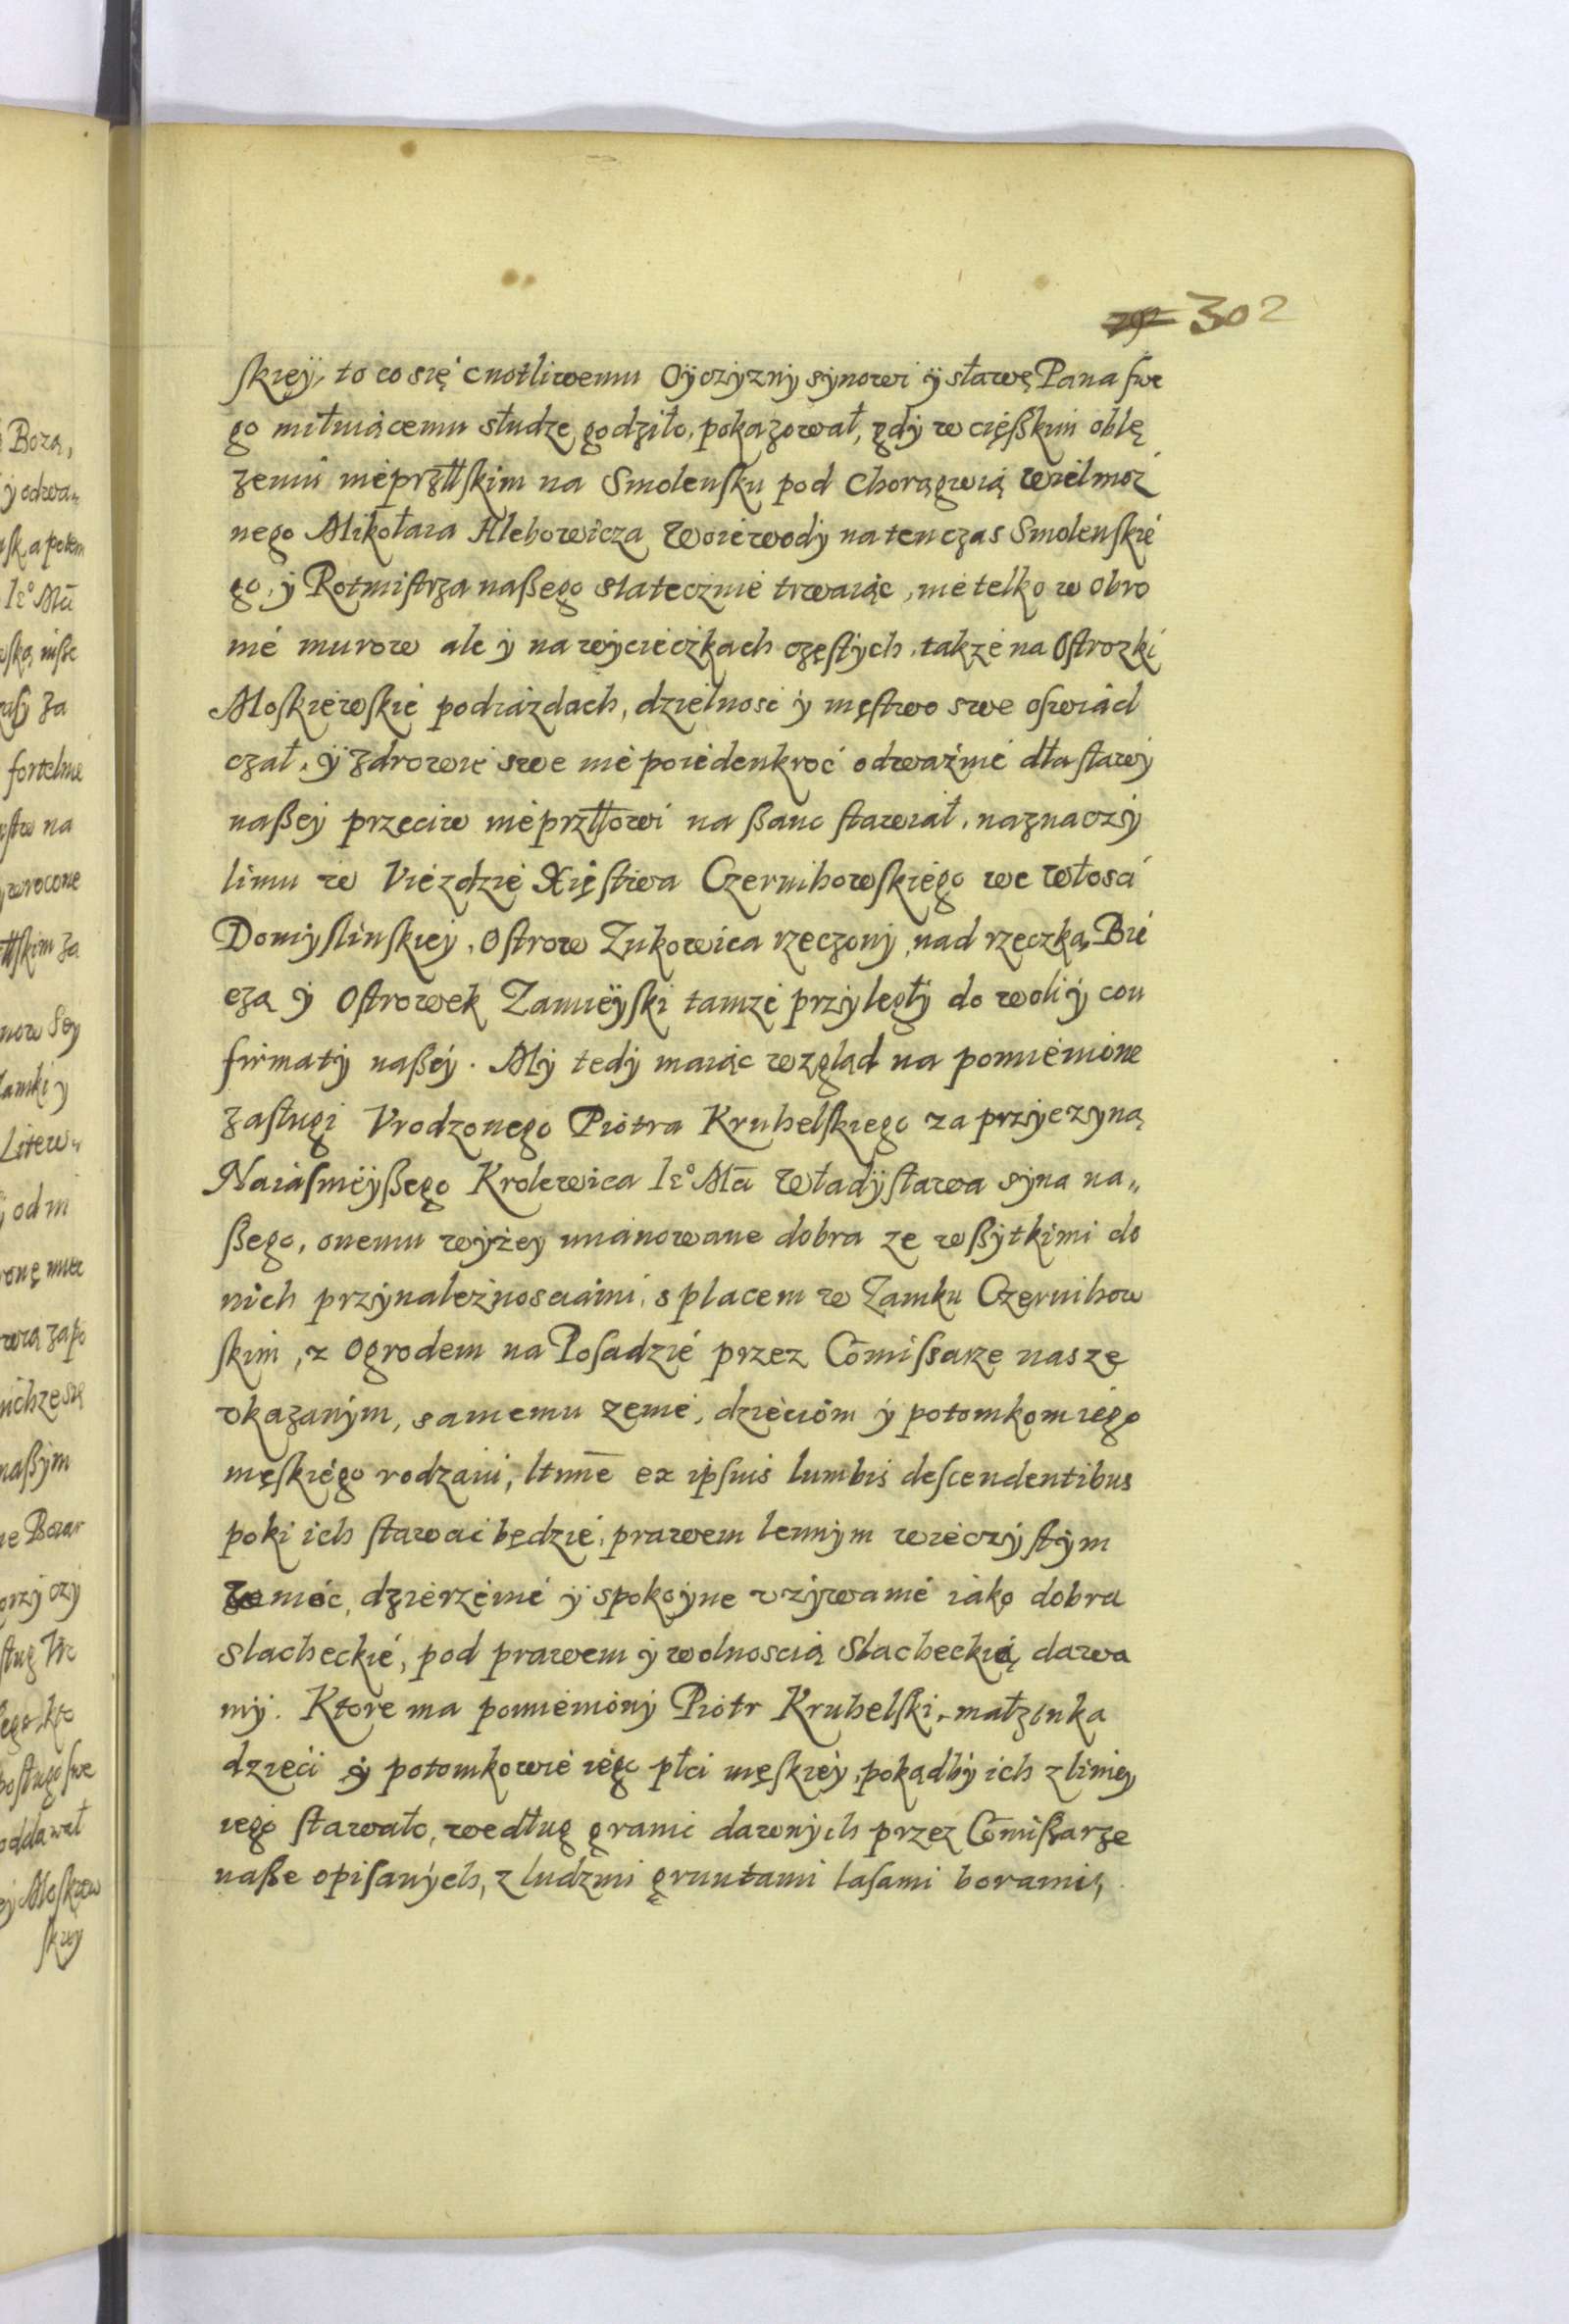 302
skiey, to co się cnotliwemu Oyczyzny synowi y sławę Pana swe
go miłuiącemu słudze godziło, pokazował, gdy w cięßkim oblę
zeniu nieprzllskim na Smolensku pod Chorągwią Wielmoz
nego Mikołaia Hlebowicza Woiewody na ten czas Smolenskie
go, y Rotmistrza naßego statecznie trwaiąc, nie telko w obro
nie murow ale y na wycieczkach częstych, takze na Ostrozki
Moskiewskie podiazdach, dzielnosc y męstwo swe oswiad
czał, y zdrowie swe nie poiedenkroć odwaznie dla sławy
naßey przeciw nieprzllowi na ßanc stawiał, naznaczy
limu w Uiezdzie Xięstwa Czernihowskiego we włosci
Domyslinskiey, Ostrow Zukowica rzeczony, nad rzeczką Bie
czą y Ostrowek Zamieyski tamze przyległy do woli y con
firmaty naßey. My tedy maiąc wzgląd na pomienione
zasługi Vrodzonego Piotra Kruhelskiego za przyczyną
Naiasnieyßego Krolewica Ie° Mci Władysława syna na„
ßego, onemu wyżey mianowane dobra ze wßytkimi do
nich przynależnosciami, s placem w Zamku Czernihow
skim, z Ogrodem na Posadzie przez Comissarze nasze
vkazanym, samemu zenie, dzieciom y potomkom iego
męskiego rodzaiu, ltime ex ipsius lumbis descendentibus
poki ich stawać będzie, prawem lennym wieczystym
dzierzenie y spokoyne vzywanie iako dobra
slacheckie, pod prawem y wolnoscią Slachecką dawa
my. Ktore ma pomieniony Piotr Kruhelski, małzonka
dzieci y potomkowie iego płci męskiey, pokądby ich z liniey
iego stawało, według granic dawnych przez Comißarze
naße opisanych, z ludzmi gruntami lasami borami,
Boza,
y odwa„
a potem
Ie° Mci
za
fortelnie
na
wrocone
za
now Sey
Zamki y
Litew„
od ni
zapo
naßym
ług Vr
oddawał
Moskiew
skiey